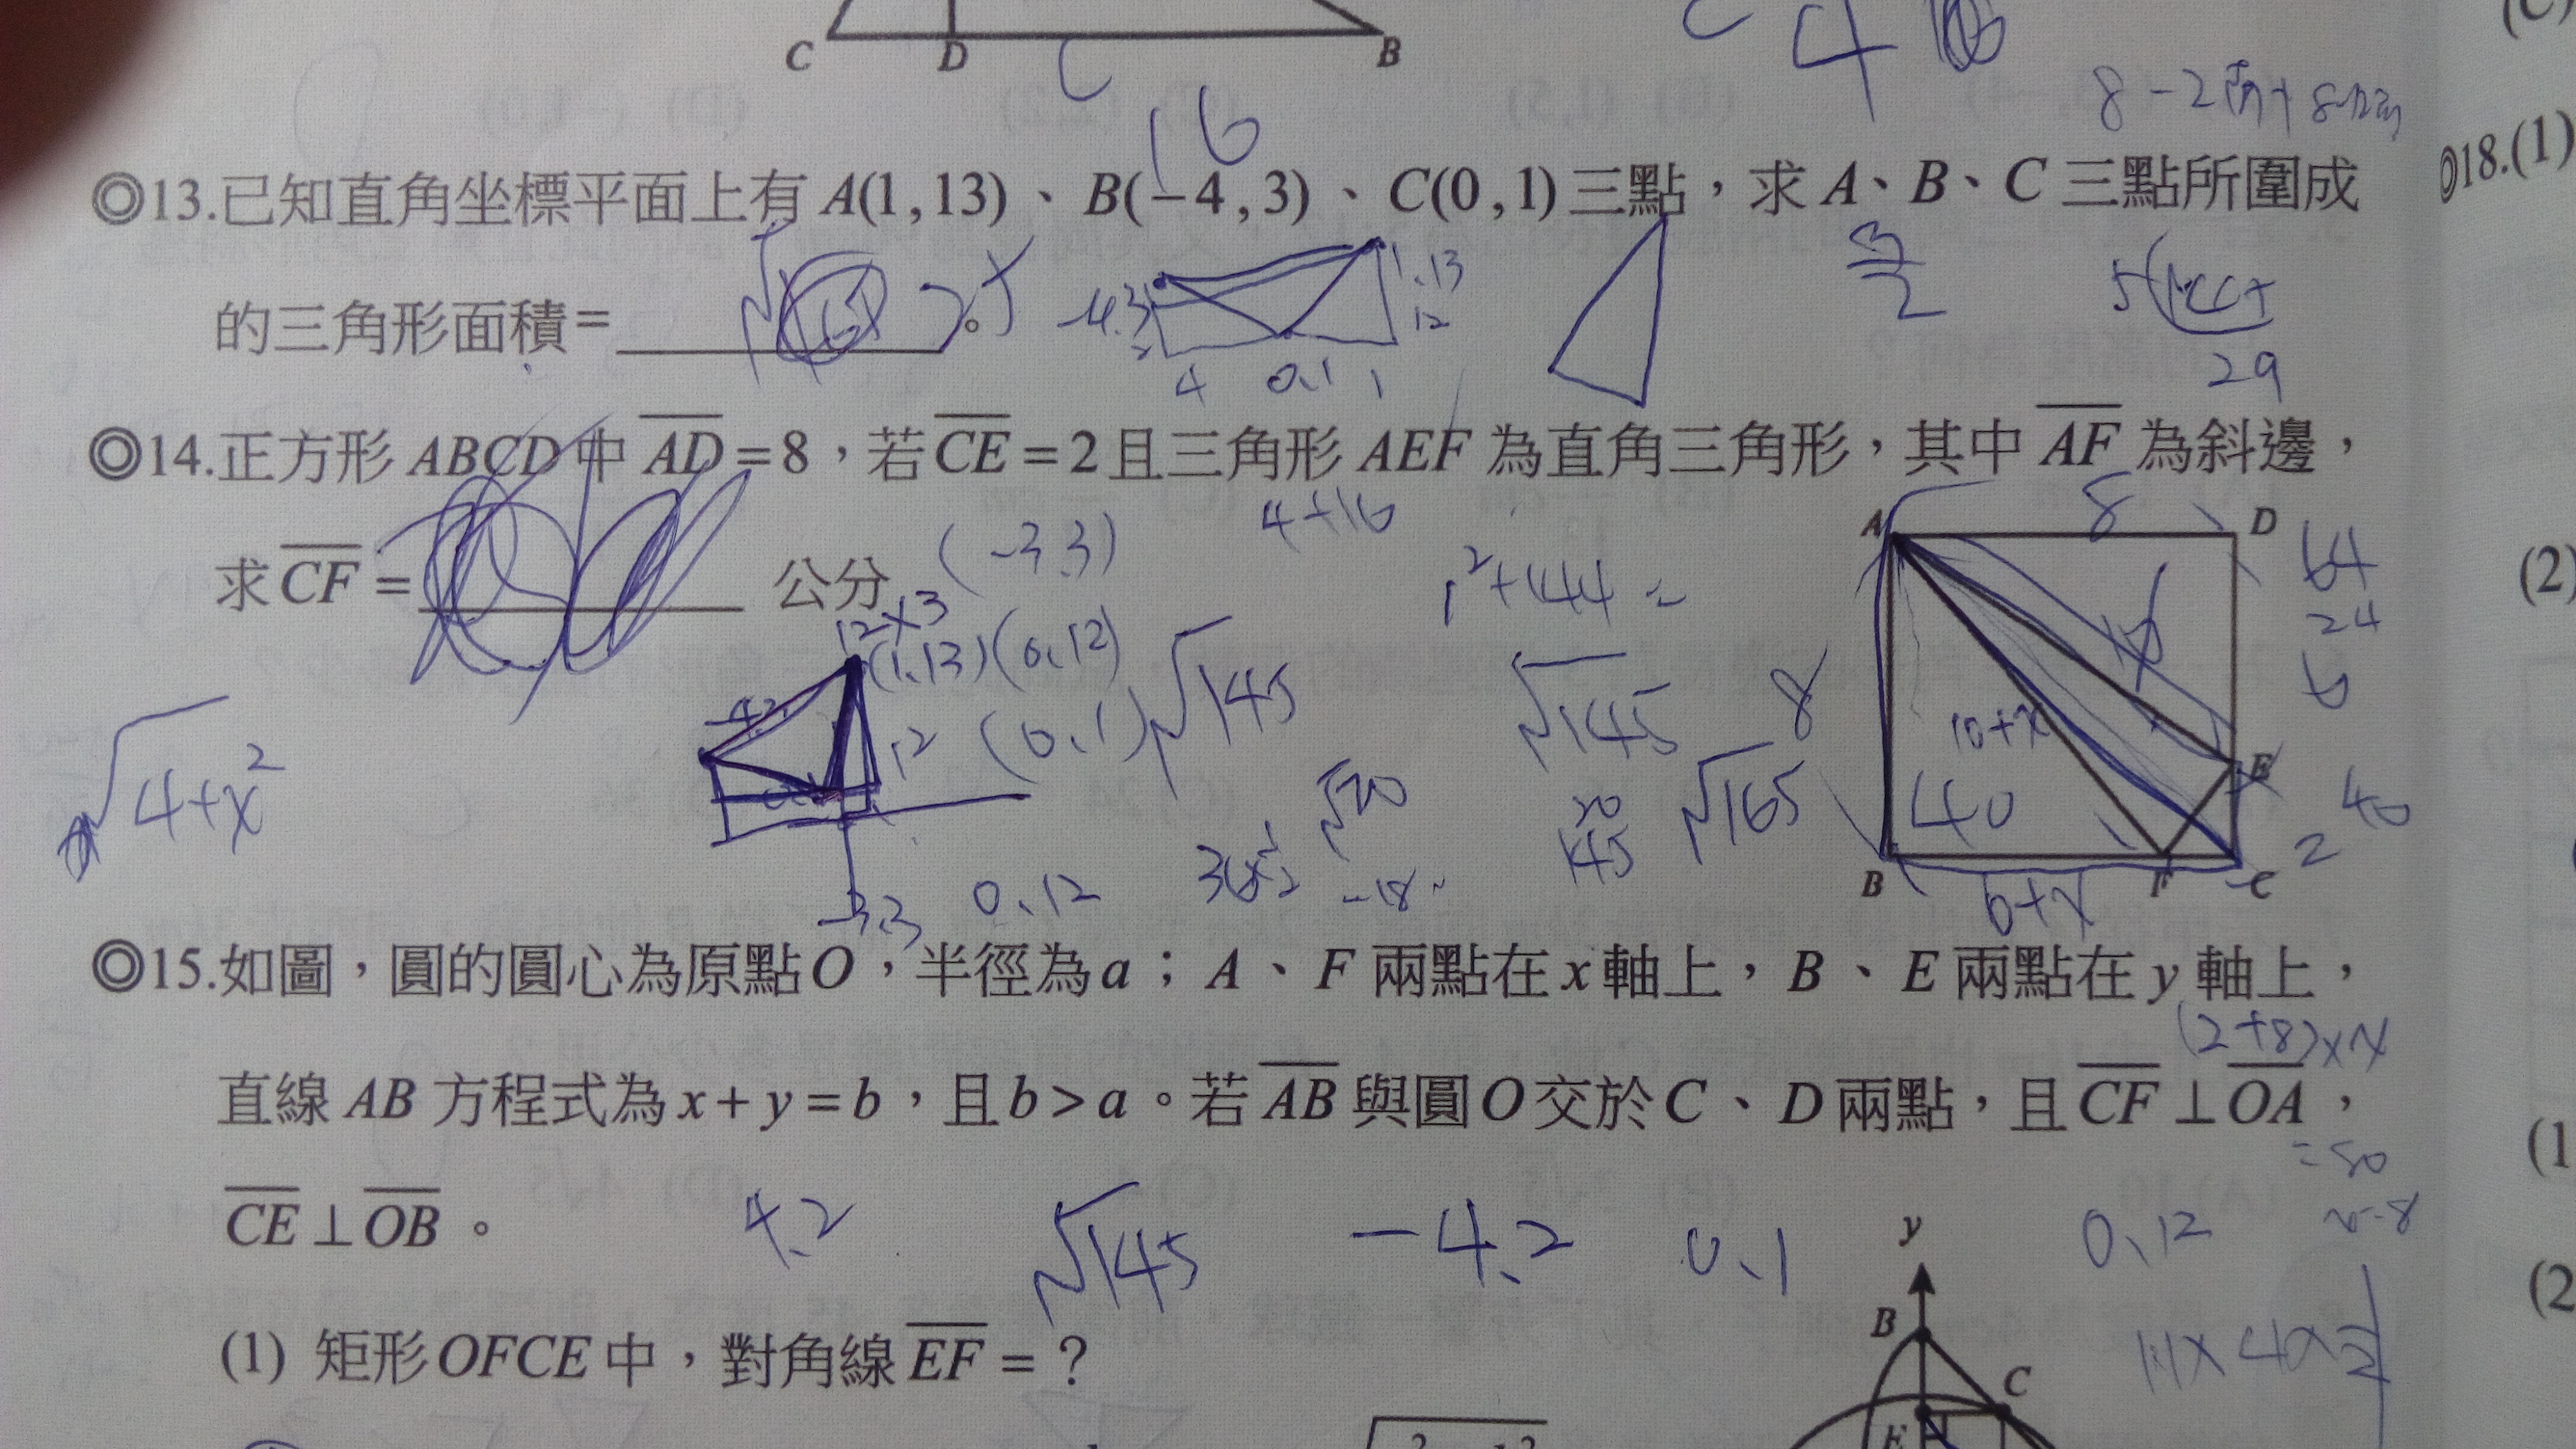 C D B
C 4
16
8-2
◎13.已知直角坐標平面上有 A(1,13)、B(-4,3)、C(0,1)三點，求 A、B、C 三點所圍成
的三角形面積=＿＿＿＿。
-4.3 1.13
12
4 0.1 1
3/2
29
◎14.正方形 ABCD 中 AD=8，若 CE=2且三角形 AEF 為直角三角形，其中 AF 為斜邊，
求 CF=＿＿＿＿ 公分
(-3.3) 4+16
12x3
(1.13)(0.12) √145
1²+144=
12 (0.1)
√145
√20
20
145
√165
√4+x²
-3.3 0.12
-18
A 8 D
64
24
6
10+x
8
E
40
40
2
B F C
6+x
◎15.如圖，圓的圓心為原點O，半徑為a；A、F 兩點在x軸上，B、E 兩點在y 軸上，
(2+8)x
直線 AB 方程式為x+y=b，且b>a。若 AB 與圓O交於C、D兩點，且 CF⊥OA，
=80
CE⊥OB。
4.2 √145 -4.2 0.1 0.12
(1) 矩形OFCE中，對角線EF=？
y
B
C
E
◎18.(1)
(2)
(1
(2